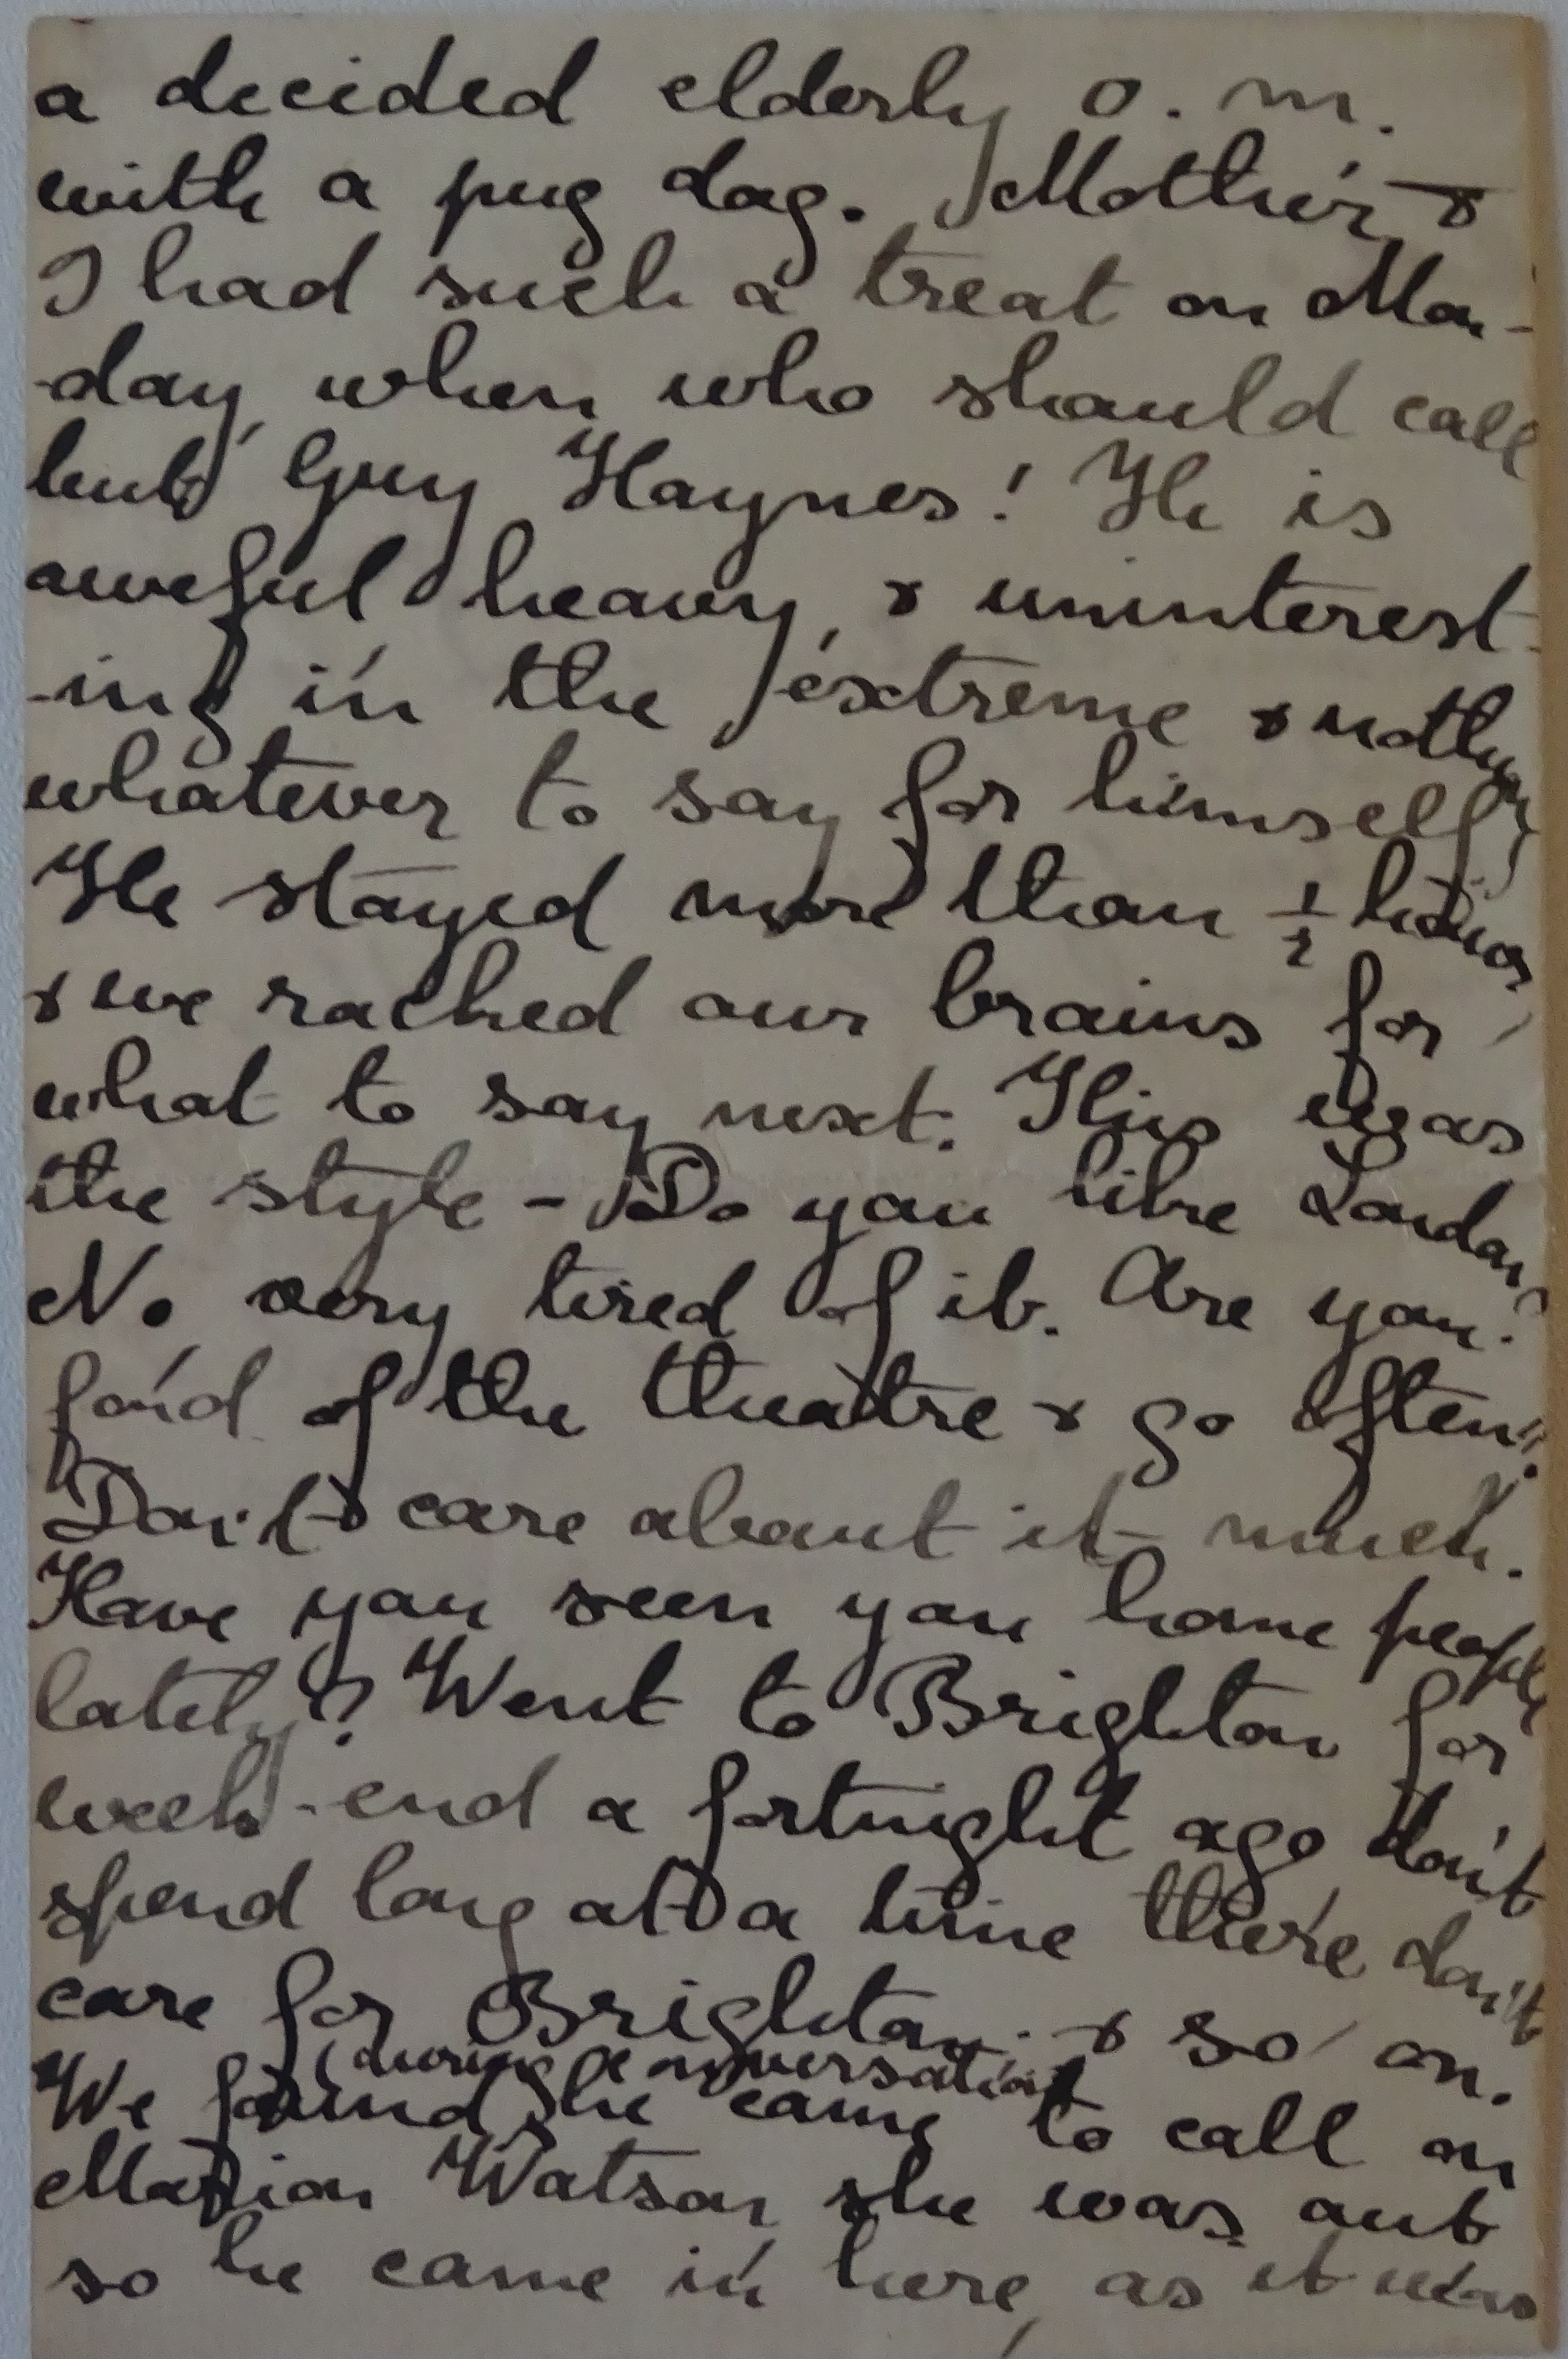 a decided elderly o. m.
with a pug dog. Mother &
I had such a treat on Mon-
-day, when who should call
but Guy Haynes! He is
aweful heavy, & uninterest-
-ing in the extreme & nothing
whatever to say for himself
He stayed more than ½ hour
& we racked our brains for
what to say next. This was
the style - Do you like London?
No very tired of it. Are you
fond of the theatre & go often?
Don't care about it much.
Have you seen you home people
lately? Went to Brighton for
week-end a fortnight ago don't
spend long at a time there don't
care for Brighton. & so on.
(during the conversation)
We found he came to call on
Marion Watson she was out
so he came in here, as it was